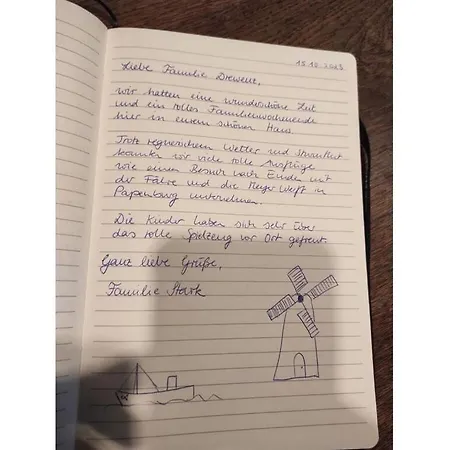 15.10.2023
Liebe Familie Drewent,
wir hatten eine wunderschöne Zeit
und ein tolles Familienwochenende
hier in eurem schönen Haus.
Trotz regnerischem Wetter und
konnten wir viele tolle Ausflüge
wie einen Besuch nach Emden mit
der Fähre und die Meyer Werft in
Papenburg unternehmen.
Die Kinder haben sich sehr über
das tolle Spielzeug vor Ort gefreut.
Ganz liebe Grüße,
Familie Stark